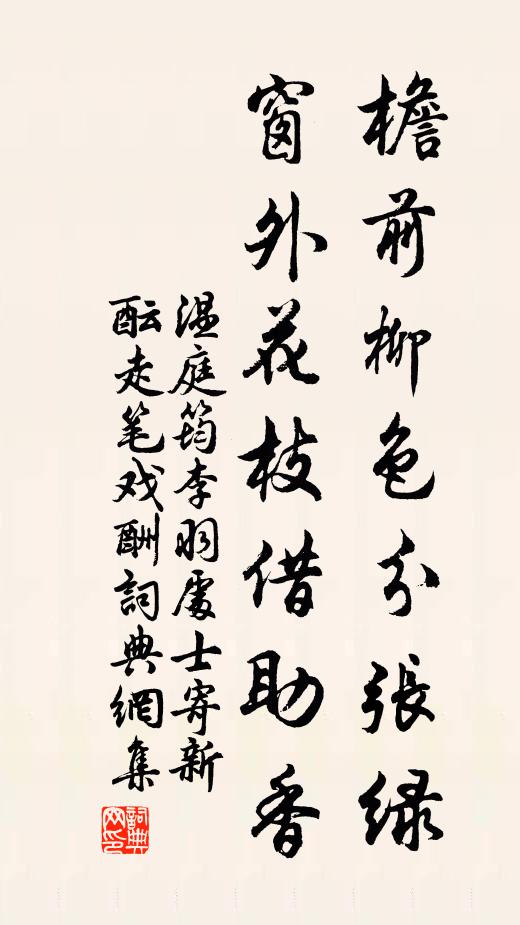 檐前柳色分張绿
窗外花枝借助香
温庭筠李羽處士寄新
酝走笔戏酬詞典網集
詞典